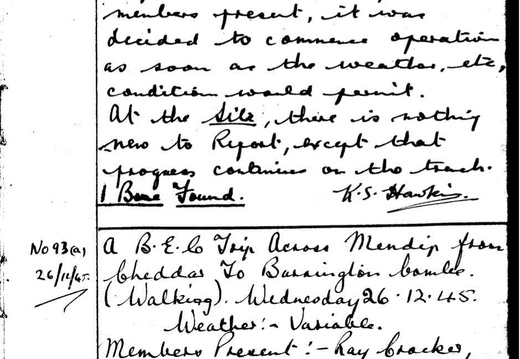 members present, it was
decided to commence operation
as soon as the weather, etc,
condition would permit.
At the Site, there is nothing
new to Report, except that
progress continues on the trench.
1 Bone Found. K. S. Hawkins.
No 93(a) A B.E.C Trip Across Mendip from
26/12/45. Cheddar To Burrington Combe.
(Walking). Wednesday 26.12.45.
Weather:- Variable.
Members Present:- Ray Crocker,